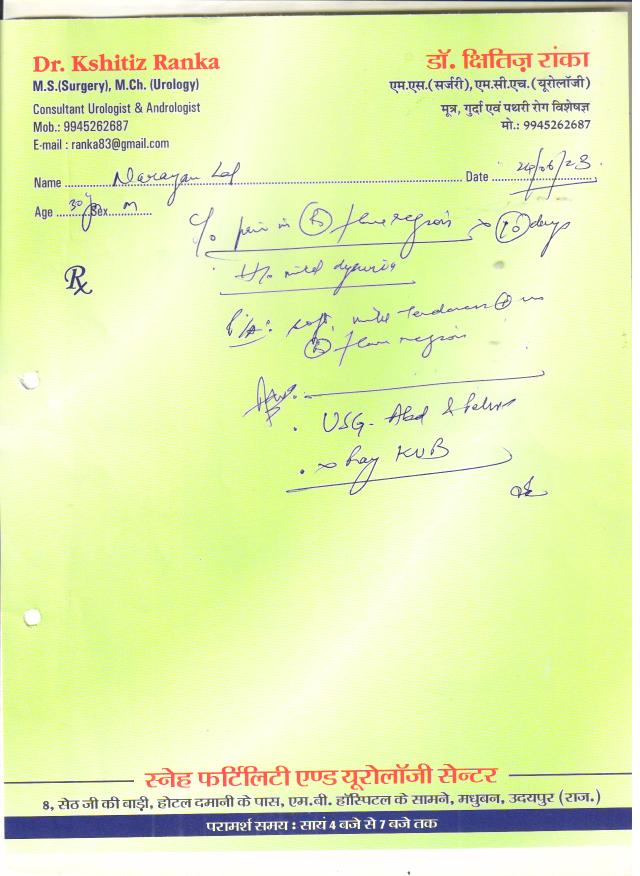 Dr. Kshitiz Ranka
M.S.(Surgery), M.Ch. (Urology)
Consultant Urologist & Andrologist
Mob.: 9945262687
E-mail : ranka83@gmail.com
डॉ. क्षितिज़ रांका
एम.एस.(सर्जरी), एम.सी.एच.(यूरोलॉजी)
मूत्र, गुर्दा एवं पथरी रोग विशेषज्ञ
मो.: 9945262687
Name Narayan Lal Date 24/06/23
Age 30y Sex M
C/o pain in flank region x 10 days
Rx
H/o mild dysuria
P/A: soft, mild tenderness + in
flank region
Adv.
. USG- Abd & Pelvis
. X Ray KUB
स्नेह फर्टिलिटी एण्ड यूरोलॉजी सेन्टर
8, सेठ जी की बाड़ी, होटल दमानी के पास, एम.बी. हॉस्पिटल के सामने, मधुबन, उदयपुर (राज.)
परामर्श समय : सायं 4 बजे से 7 बजे तक